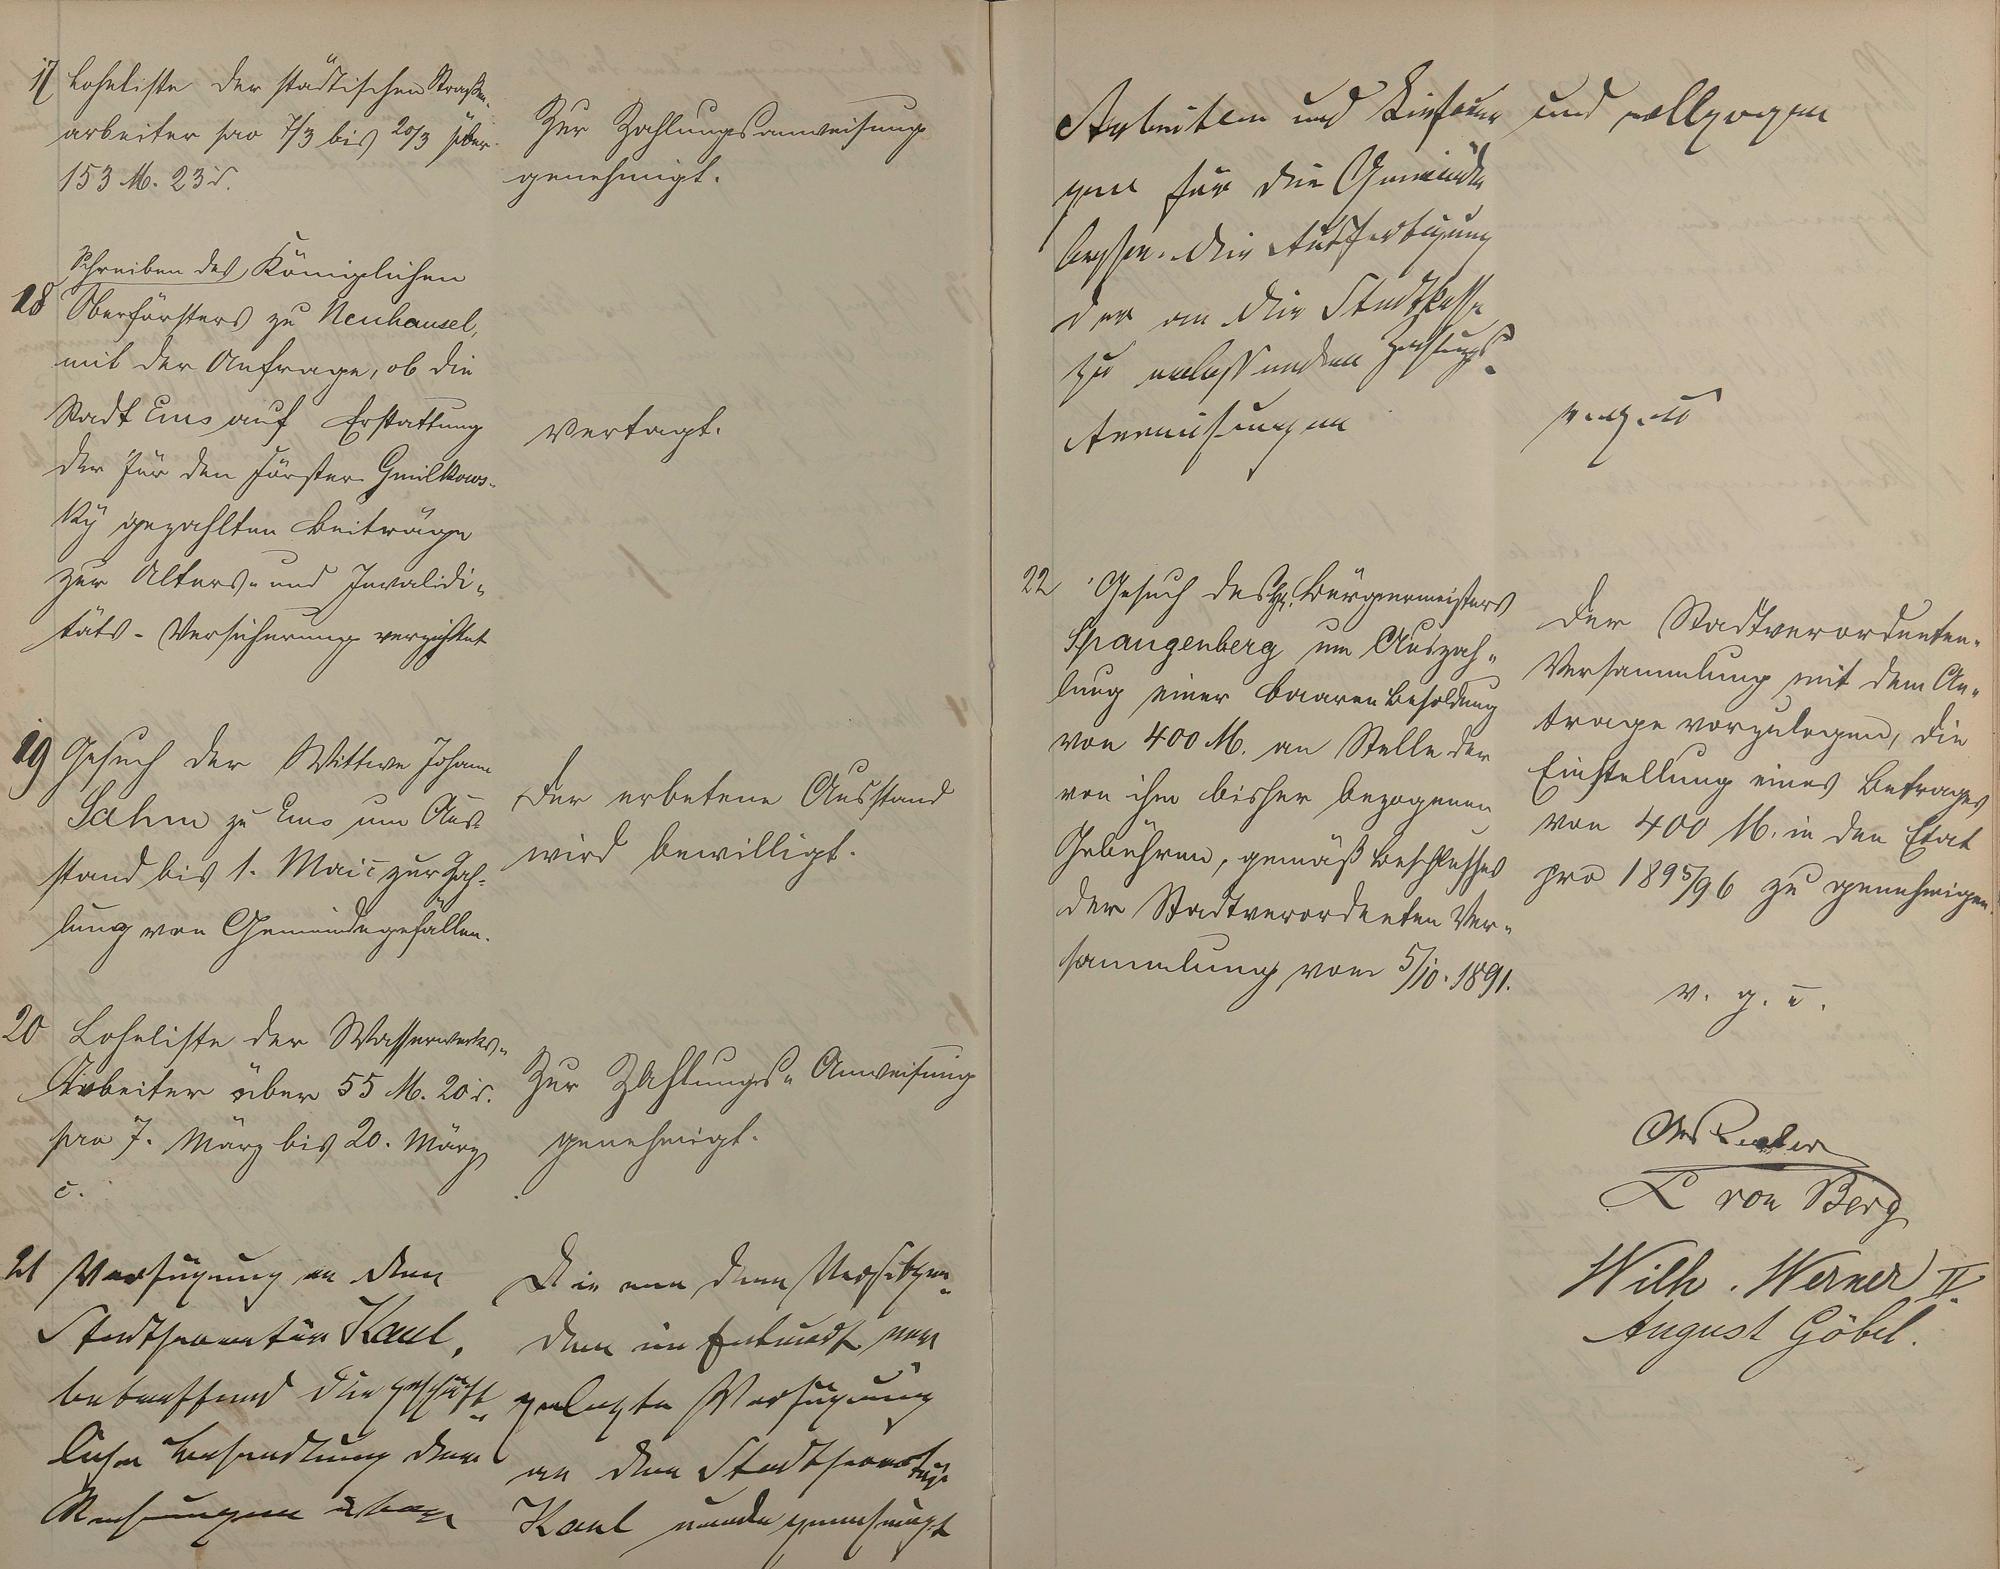 17 Lohnliste der städtischen Straßen-
arbeiter pro 7/3 bis 20/3 über
153 M. 23 ₰.
Zur Zahlungsanweisung
genehmigt.
18 Schreiben des Königlichen
Oberförsters zu Neuhäusel,
mit der Anfrage, ob die
Stadt Ems auf Erstattung
der für den Förster Gmilkows-
ky gezahlten Beiträge
zur Alters- und Invalidi-
täts-Versicherung verzichtet
Vertagt.
19 Gesuch der Wittwe Johann
Sahm zu Ems um Aus-
stand bis 1. Mai c. zur Zah-
lung von Gemeindegefällen.
Der erbetene Ausstand
wird bewilligt.
20 Lohnliste der Wasserwerks-
Arbeiter über 55 M. 20 ₰.
pro 7. März bis 20. März
c.
Zur Zahlungs-Anweisung
genehmigt.
21 Verfügung an den
Stadtsecretär Kaul,
betreffend die geschäft-
liche Behandlung der
Rechnungen über
Die von dem Vorsitzen-
den im Entwurf vor
gelegte Verfügung
an den Stadtsecretär
Kaul wurde genehmigt
Arbeiten und Lieferun
gen für die Gemeinde
Die Ausfertigung
der an die Stadtkasse
zu erlassenden Zahlungs-
Anweisungen
und vollzogen
22 Gesuch des H. Bürgermeisters
Spangenberg um Auszah-
lung einer baaren Besoldung
von 400 M. an Stelle der
von ihm bisher bezogenen
Gebühren, gemäß Beschlusses
der Stadtverordneten Ver-
sammlung vom 5/10. 1891.
Der Stadtverordneten-
Versammlung mit dem An-
trage vorzulegen, die
Einstellung eines Betrages
von 400 M. in den Etat
pro 1895/96 zu genehmigen.
v. g. u.
L von Berg
Wilh. Werner II.
August Göbel.